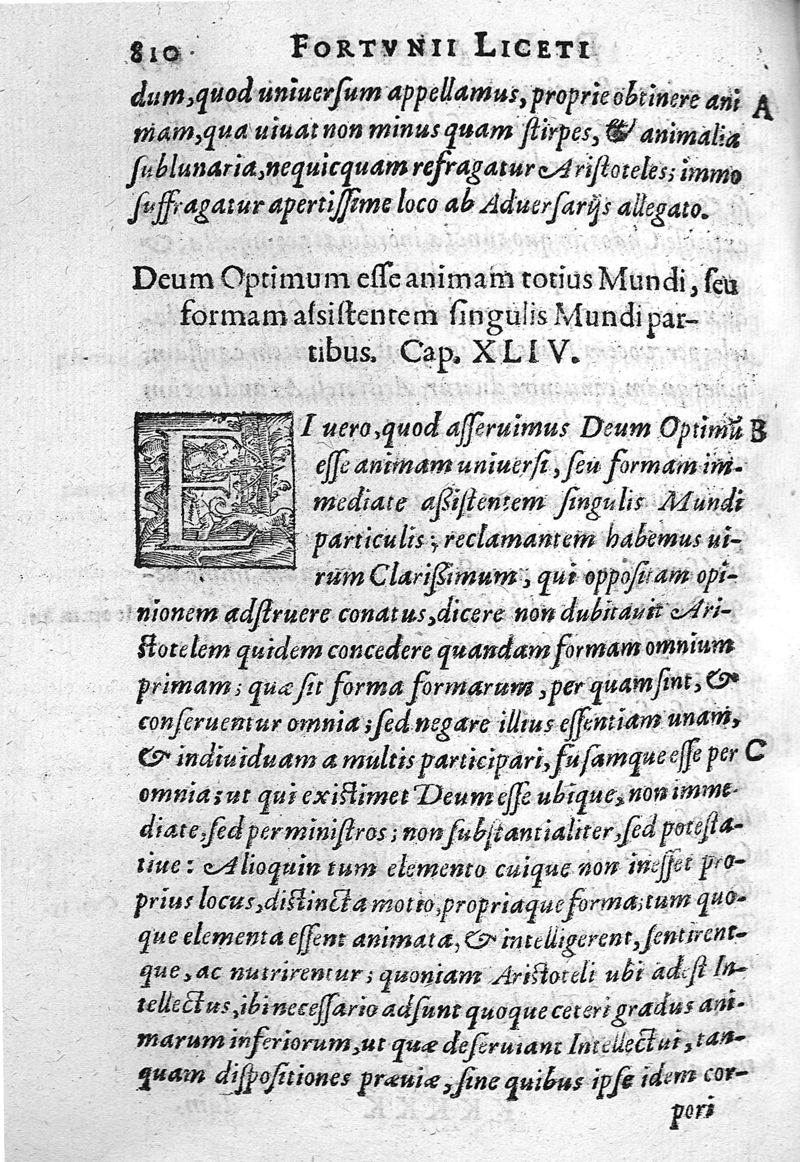 810 FORTVNII LICETI
dum, quod uniuersum appellamus, proprie obtinere ani A
mam, qua uiuat non minus quam stirpes, & animalia
sublunaria, nequicquam refragatur Aristoteles; immo
suffragatur apertissime loco ab Aduersarijs allegato.
Deum Optimum esse animam totius Mundi, seu
formam assistentem singulis Mundi par-
tibus. Cap. XLIV.
EI uero, quod asseruimus Deum Optimũ B
esse animam uniuersi, seu formam im-
mediate aßistentem singulis Mundi
particulis; reclamantem habemus ui-
rum Clarißimum, qui oppositam opi-
nionem adstruere conatus, dicere non dubitauit Ari-
stotelem quidem concedere quandam formam omnium
primam; quæ sit forma formarum, per quam sint, &
conseruentur omnia; sed negare illius essentiam unam,
& indiuiduam a multis participari, fusamque esse per C
omnia; ut qui existimet Deum esse ubique, non imme-
diate, sed per ministros; non substantialiter, sed potesta-
tiue: Alioquin tum elemento cuique non inesset pro-
prius locus, distincta motio, propriaque forma; tum quo-
que elementa essent animata, & intelligerent, sentirent-
que, ac nutrirentur; quoniam Aristoteli ubi adest In-
tellectus, ibi necessario adsunt quoque ceteri gradus ani-
marum inferiorum, ut quæ deseruiant Intellectui, tan-
quam dispositiones præuiæ, sine quibus ipse idem cor-
pori